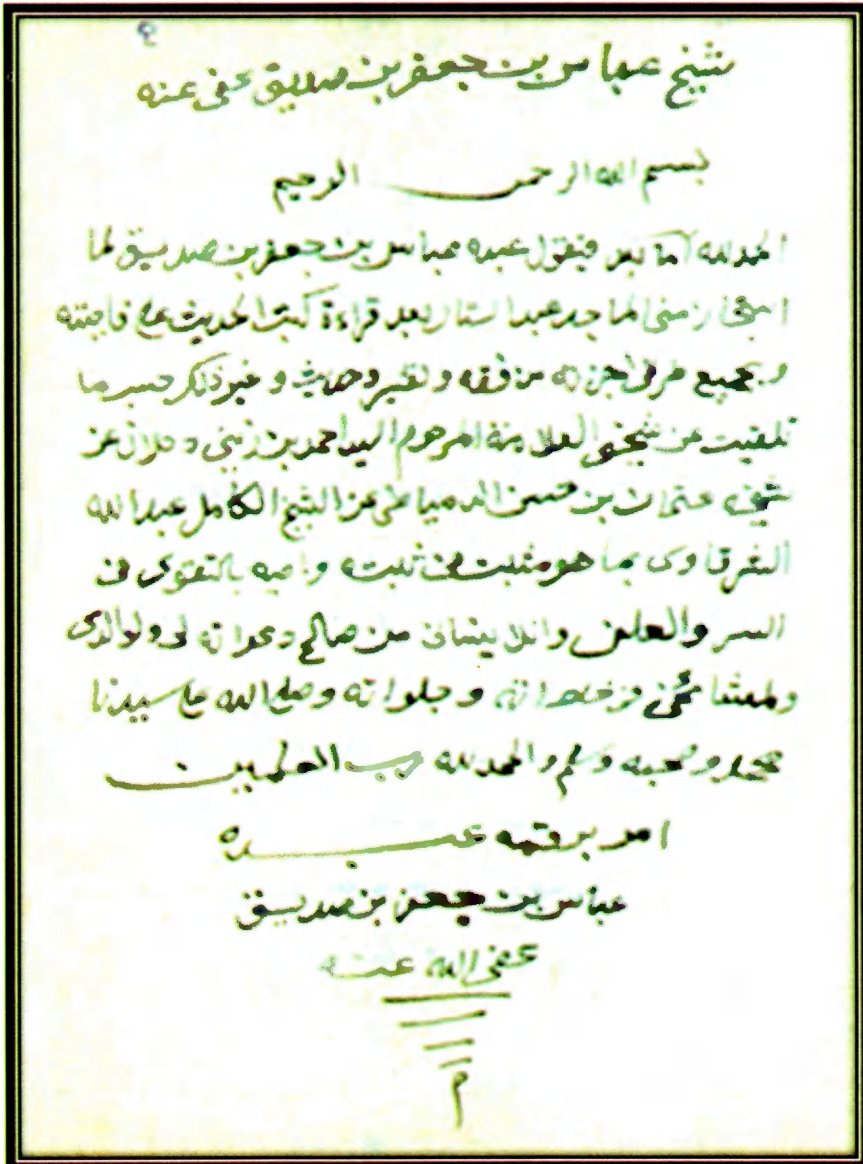 ٩
شيخ عباس بن جعفر بن صديق عفى عنه
بسم الله الرحمن الرحيم
الحمد لله اما بعد فيقول عبده عباس بن جعفر بن صديق لما
استجازمنى الماجد عبد الستار بعد قراءة كتب الحديث على
وبجميع اجزته من فقه وتفسير وحديث و غير ذلك حسبما
تلقيت عن شيخى العلامة المرحوم السيد احمد بن زينى دحلان عن
شيخه عثمان بن حسن الدمياطى عن الشيخ الكامل عبد الله
الشرقاوى بما هو مثبت فى ثبته واصيه بالتقوى فى
السر والعلن وان لا ينسانى من صالح دعواته لى ولوالدى
ولمشائخى فى خلواته وجلواته وصلى الله على سيدنا
محمد وصحبه وسلم والحمد لله رب العلمين
امر برقمه عبده
عباس بن جعفر بن صديق
عفى الله عنه
م